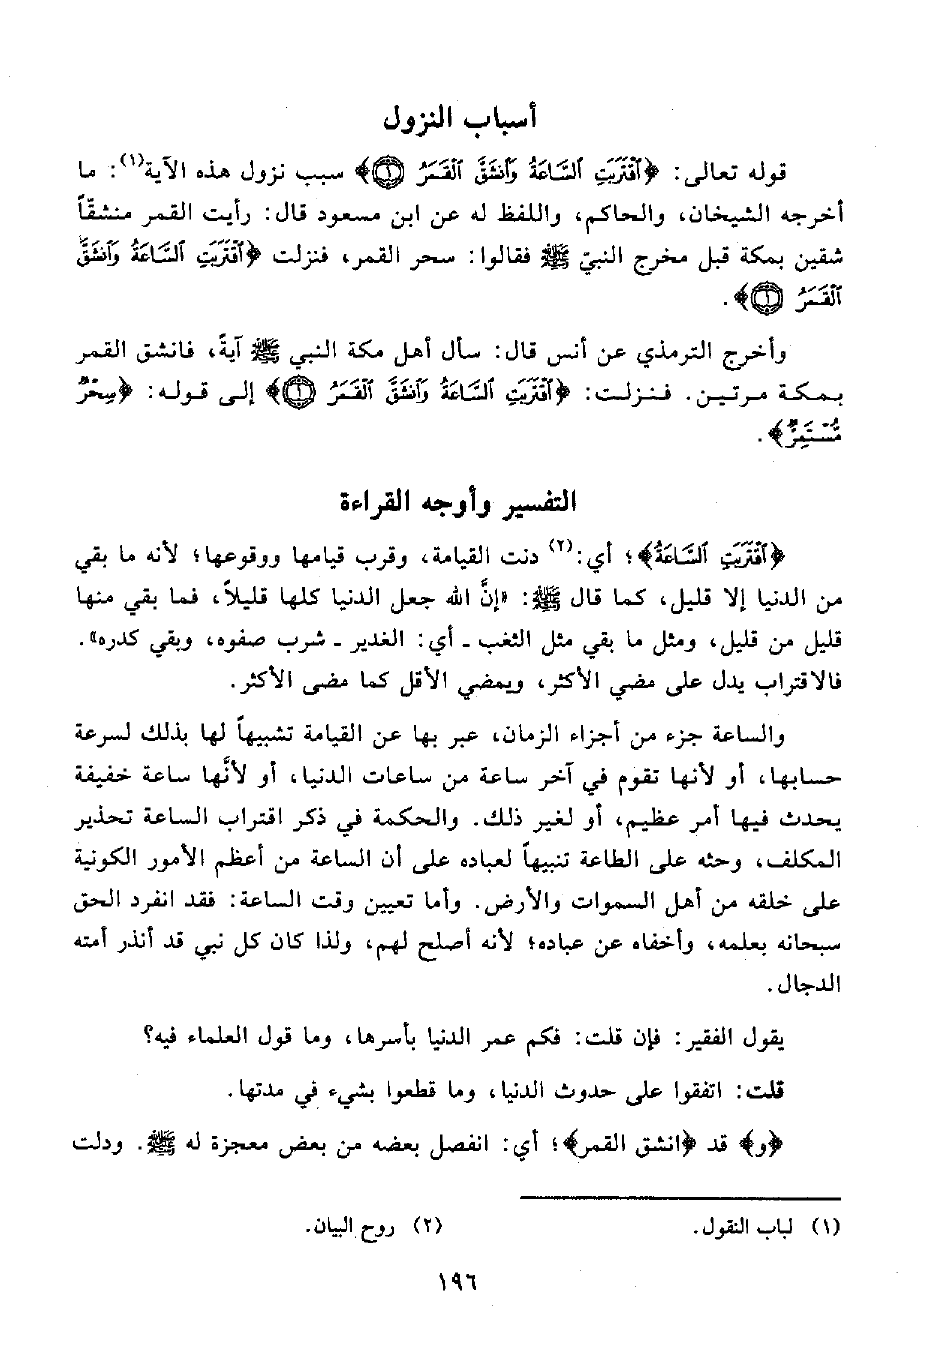 أسباب النزول
قوله تعالى: ﴿ٱقْتَرَبَتِ ٱلسَّاعَةُ وَٱنشَقَّ ٱلْقَمَرُ ۝١﴾ سبب نزول هذه الآية(١): ما
أخرجه الشيخان، والحاكم، واللفظ له عن ابن مسعود قال: رأيت القمر منشقاً
شقين بمكة قبل مخرج النبيّ ﷺ فقالوا: سحر القمر، فنزلت ﴿ٱقْتَرَبَتِ ٱلسَّاعَةُ وَٱنشَقَّ
ٱلْقَمَرُ ۝١﴾.
وأخرج الترمذي عن أنس قال: سأل أهل مكة النبي ﷺ آيةً، فانشق القمر
بمكة مرتين. فنزلت: ﴿ٱقْتَرَبَتِ ٱلسَّاعَةُ وَٱنشَقَّ ٱلْقَمَرُ ۝١﴾ إلى قوله: ﴿سِحْرٌ
مُّسْتَمِرٌّ﴾.
التفسير وأوجه القراءة
﴿ٱقْتَرَبَتِ ٱلسَّاعَةُ﴾؛ أي:(٢) دنت القيامة، وقرب قيامها ووقوعها؛ لأنه ما بقي
من الدنيا إلا قليل، كما قال ﷺ: «إنَّ الله جعل الدنيا كلها قليلاً، فما بقي منها
قليل من قليل، ومثل ما بقي مثل الثغب ـ أي: الغدير ـ شرب صفوه، وبقي كدره».
فالاقتراب يدل على مضي الأكثر، ويمضي الأقل كما مضى الأكثر.
والساعة جزء من أجزاء الزمان، عبر بها عن القيامة تشبيهاً لها بذلك لسرعة
حسابها، أو لأنها تقوم في آخر ساعة من ساعات الدنيا، أو لأنَّها ساعة خفيفة
يحدث فيها أمر عظيم، أو لغير ذلك. والحكمة في ذكر اقتراب الساعة تحذير
المكلف، وحثه على الطاعة تنبيهاً لعباده على أن الساعة من أعظم الأمور الكونية
على خلقه من أهل السموات والأرض. وأما تعيين وقت الساعة: فقد انفرد الحق
سبحانه بعلمه، وأخفاه عن عباده؛ لأنه أصلح لهم، ولذا كان كل نبي قد أنذر أمته
الدجال.
يقول الفقير: فإن قلت: فكم عمر الدنيا بأسرها، وما قول العلماء فيه؟
قلت: اتفقوا على حدوث الدنيا، وما قطعوا بشيء في مدتها.
﴿و﴾ قد ﴿انشق القمر﴾؛ أي: انفصل بعضه من بعض معجزة له ﷺ. ودلت
(١) لباب النقول. (٢) روح البيان.
١٩٦